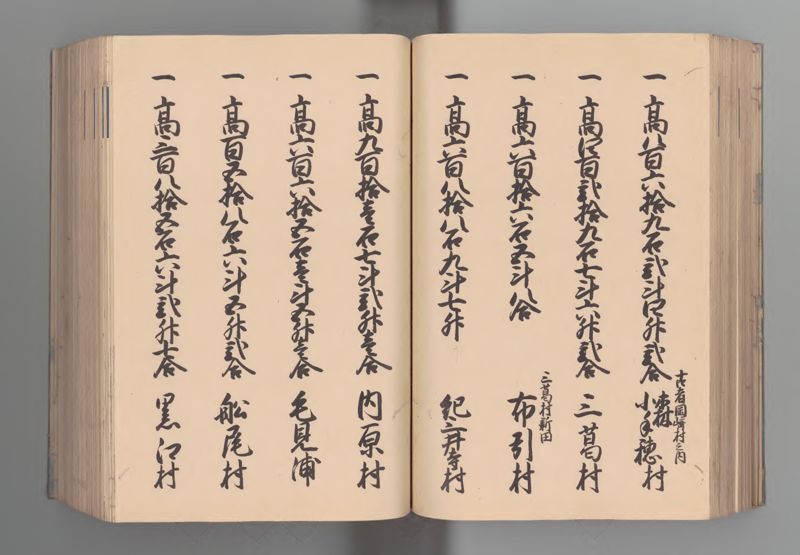 一 高八百六拾九石弐斗四升弐合
古者岡崎村之内
小手穂村
一 高四百弐拾九石七斗六升弐合 三葛村
一 高六百拾六石五斗八合
三葛村新田
布引村
一 高六百八拾八石九斗七升 紀三井寺村
一 高九百拾壱石七斗弐升壱合 内原村
一 高六百六拾五石壱斗五升三合 毛見浦
一 高百五拾八石六斗五升弐合 船尾村
一 高三百八拾五石六斗弐升七合 黒江村